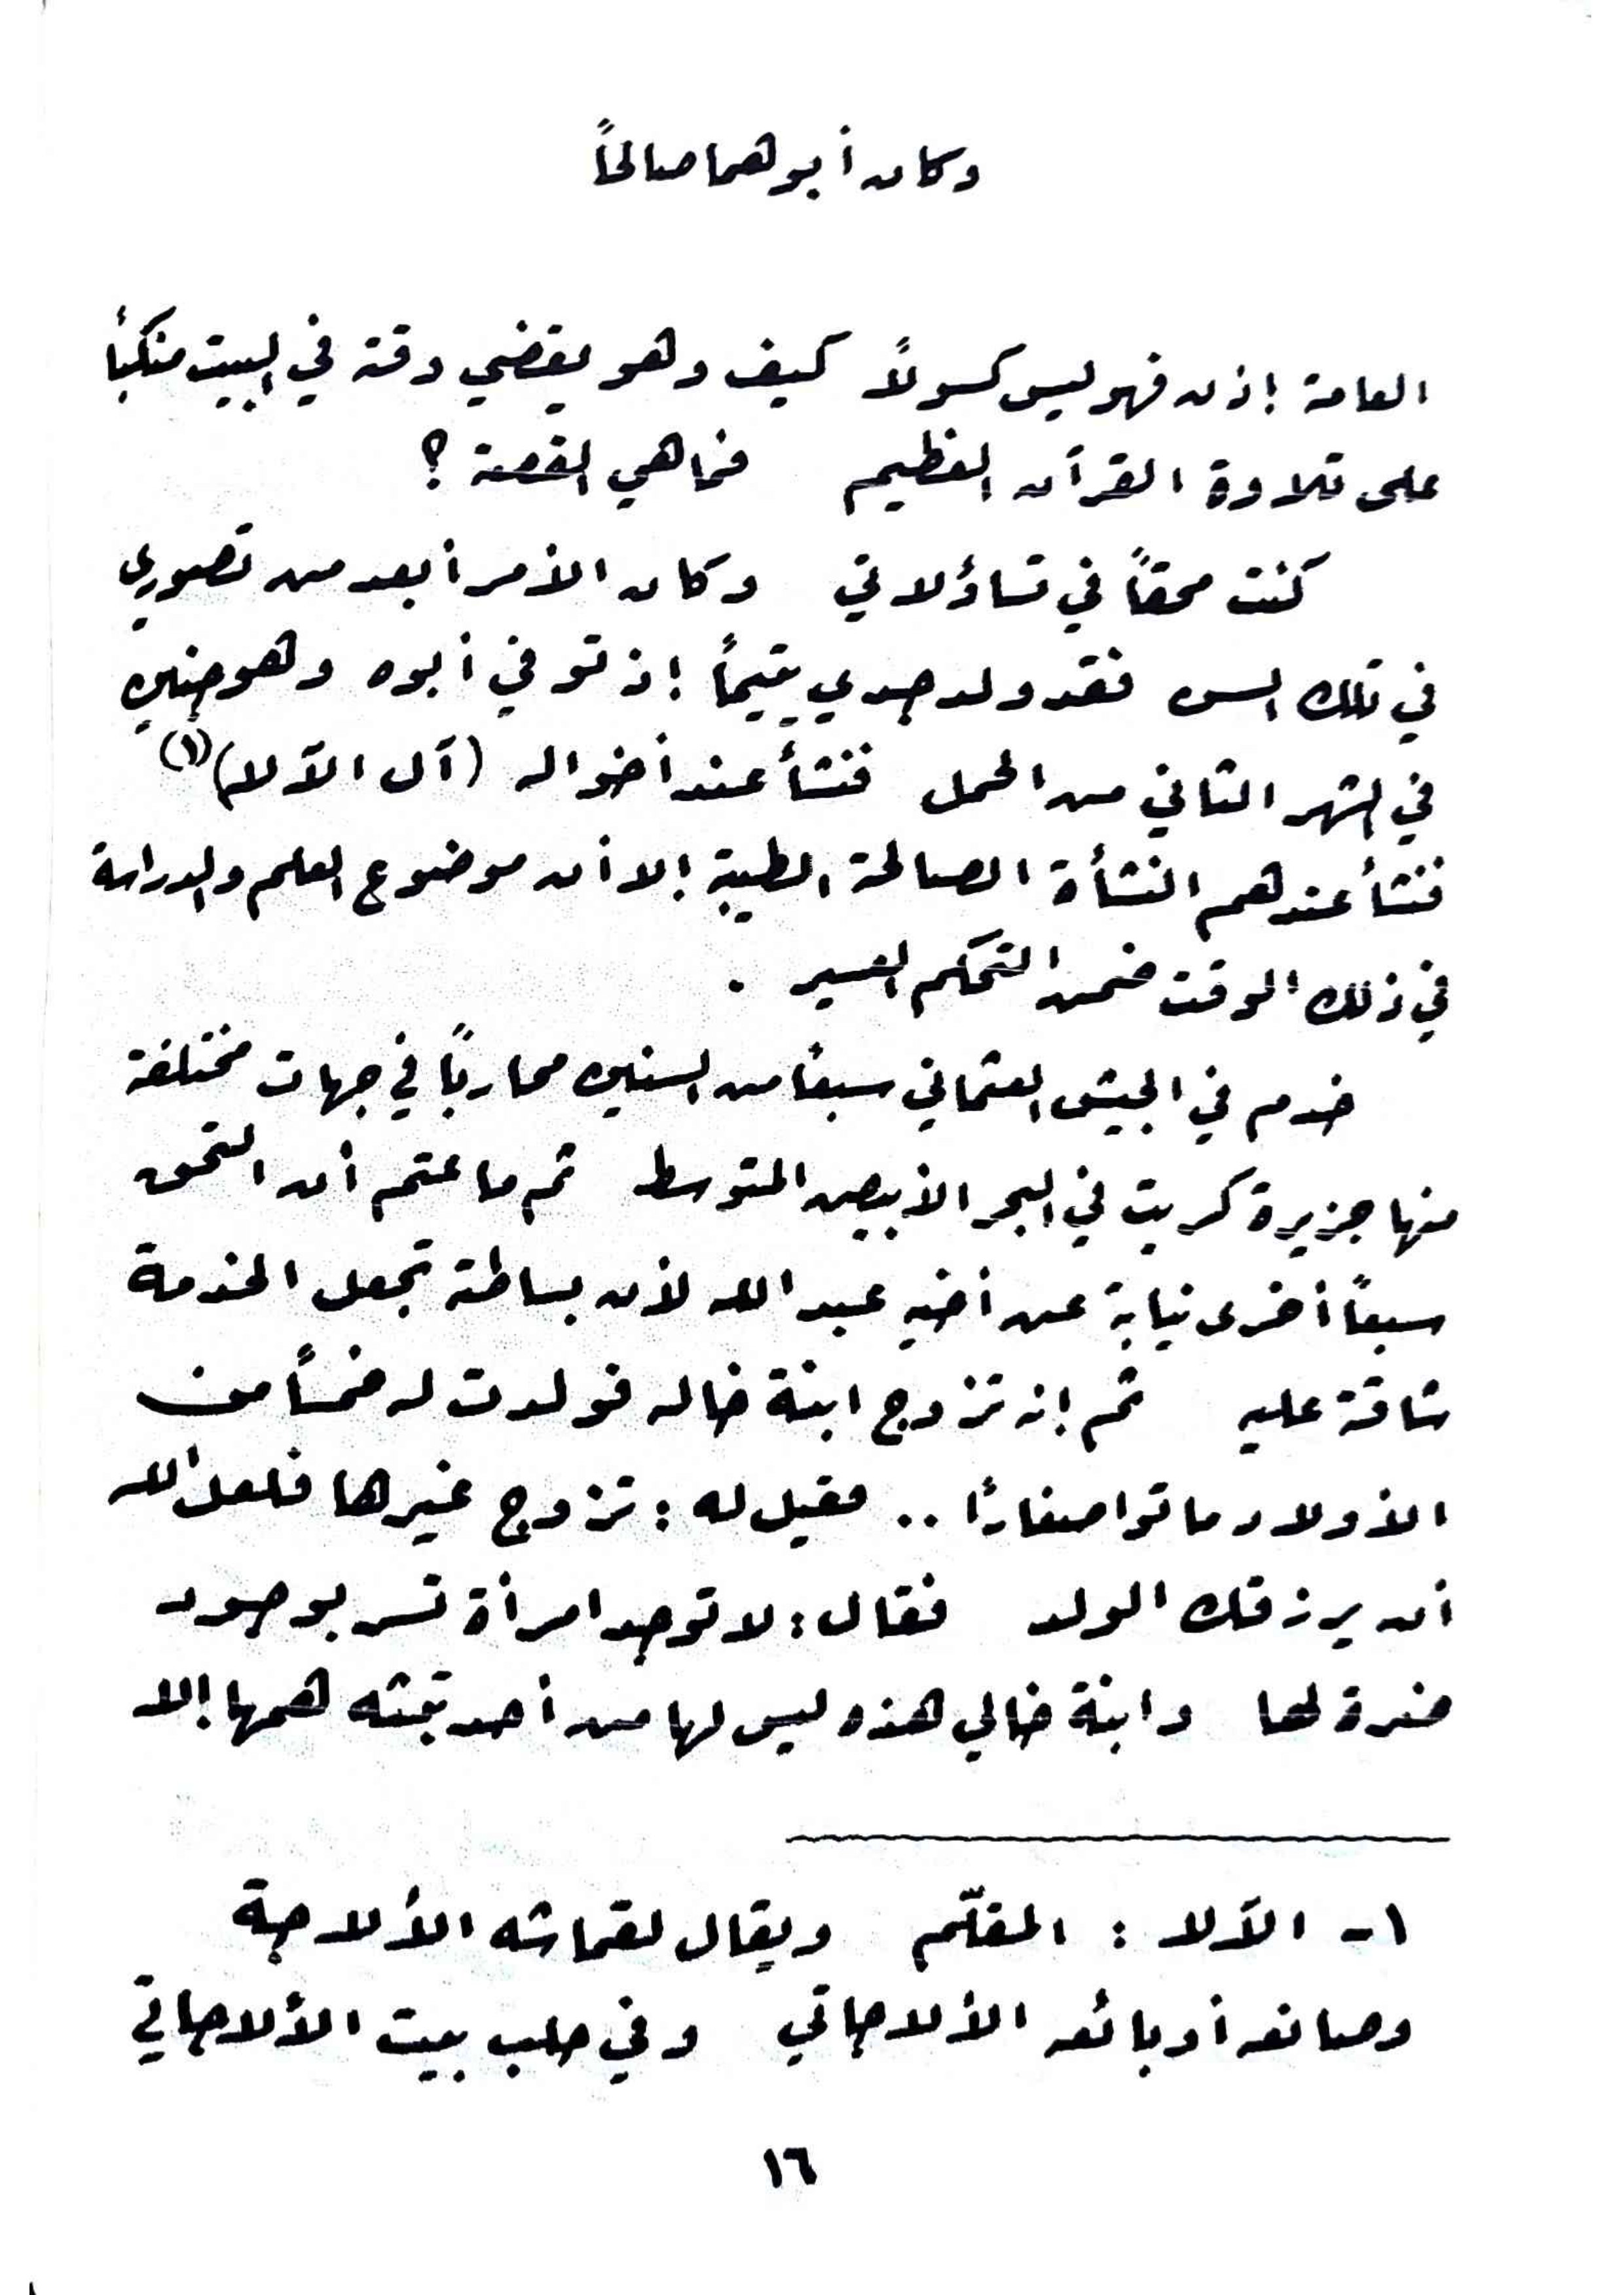 وكان أبوهما صالحاً
العامة إذن فهو ليس كسولاً كيف وهو يقضي وقته في البيت منكبّاً
على تلاوة القرآن العظيم فما هي القصة ؟
كنت محقاً في تساؤلاتي وكان الأمر أبعد من تصوري
في تلك السن فقد ولد جدي يتيماً إذ توفي أبوه وهو جنين
في الشهر الثاني من الحمل فنشأ عند أخواله (آل الآلا) (١)
فنشأ عندهم النشأة الصالحة الطيبة إلا أن موضوع العلم والدراسة
في ذلك الوقت ضمن التحكم العسير .
خدم في الجيش العثماني سبعاً من السنين محارباً في جهات مختلفة
منها جزيرة كريت في البحر الأبيض المتوسط ثم ما عتم أن التحق
سبعاً أخرى نيابة عن أخيه عبد الله لأن بساطته تجعل الخدمة
شاقة عليه ثم إنه تزوج ابنة خاله فولدت له خمساً من
الأولاد ماتوا صغاراً .. فقيل له : تزوج غيرها فلعل الله
أن يرزقك الولد فقال : لا توجد امرأة تسر بوجود
ضرة لها وابنة خالي هذه ليس لها من أحد تبثه همها إلا
١- الآلا : المقلّم ويقال لقماشه الألاجة
وصانعه أو بائعه الألاجاتي وفي حلب بيت الألاجاتي
١٦